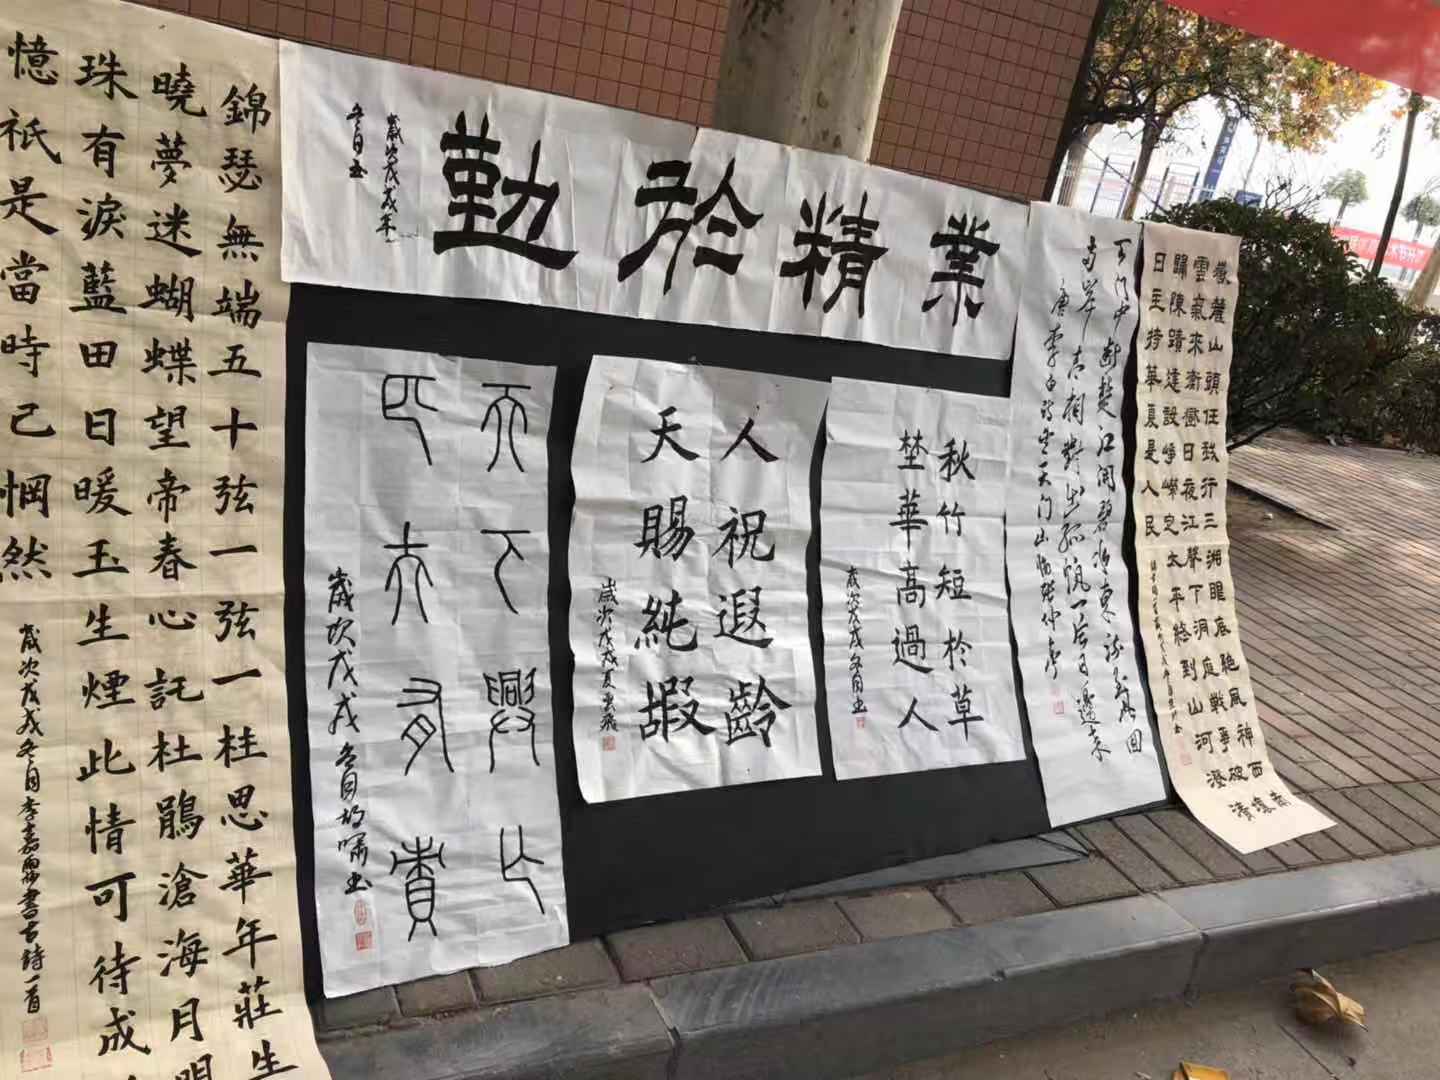 錦瑟無端五十弦一弦一柱思華年莊生
曉夢迷蝴蝶望帝春心託杜鵑滄海月明
珠有淚藍田日暖玉生煙此情可待成
憶祇是當時己惘然
歲次戊戌冬月李嘉霖書古詩一首
業精於勤
歲次戊戌年
冬月書
天下興亡
匹夫有責
歲次戊戌冬月胡嘯書
人祝遐齡
天賜純嘏
歲次戊戌夏雲飛
秋竹短於草
埜華高過人
歲次戊戌冬月書
天门中断楚江開碧水東流至此回
兩岸青山相對出孤帆一片日邊来
唐李白詩望天门山
嶽麓山頭任我行三湘眼底絶風神西南
雲氣來衡嶽日夜江聲下洞庭戰爭破壞
歸陳蹟建設崢嶸定太平終到山河澄清
日主持華夏是人民